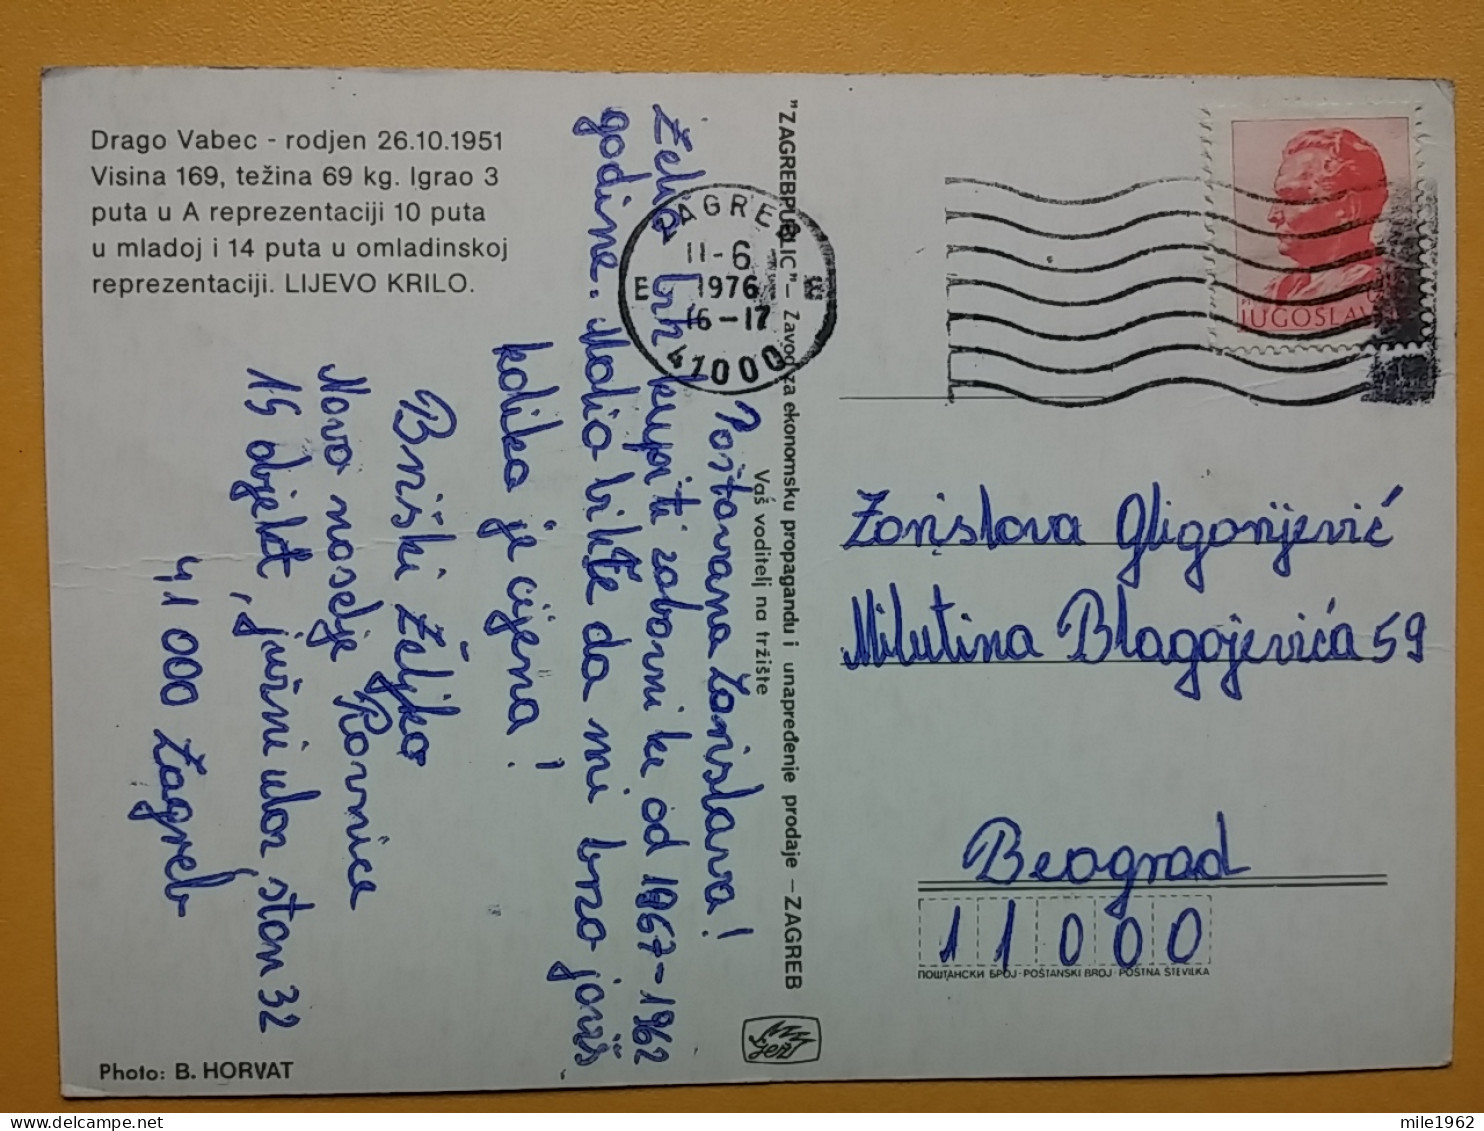 Drago Vabec - rodjen 26.10.1951
Visina 169, težina 69 kg. Igrao 3
puta u A reprezentaciji 10 puta
u mladoj i 14 puta u omladinskoj
reprezentaciji. LIJEVO KRILO.
Poštovana Zorislava!
Želio bih kupiti zabavnike od 1967-1962
godine. Molio bih Vas da mi brzo javiš
kolika je cijena!
Briški Željko
Novo naselje Ravnice
15 objekt, južni ulaz, stan 32
41 000 Zagreb
Photo: B. HORVAT
"ZAGREBPUBLIC" - Zavod za ekonomsku propagandu i unapređenje prodaje - ZAGREB
Vaš voditelj na tržište
ZAGREB
11-6
E 1976 E
16-17
41000
JUGOSLAV
Zorislava Gligorijević
Milutina Blagojevića 59
Beograd
11000
ПОШТАНСКИ БРОЈ · POŠTANSKI BROJ · POŠTNA ŠTEVILKA
mile1962